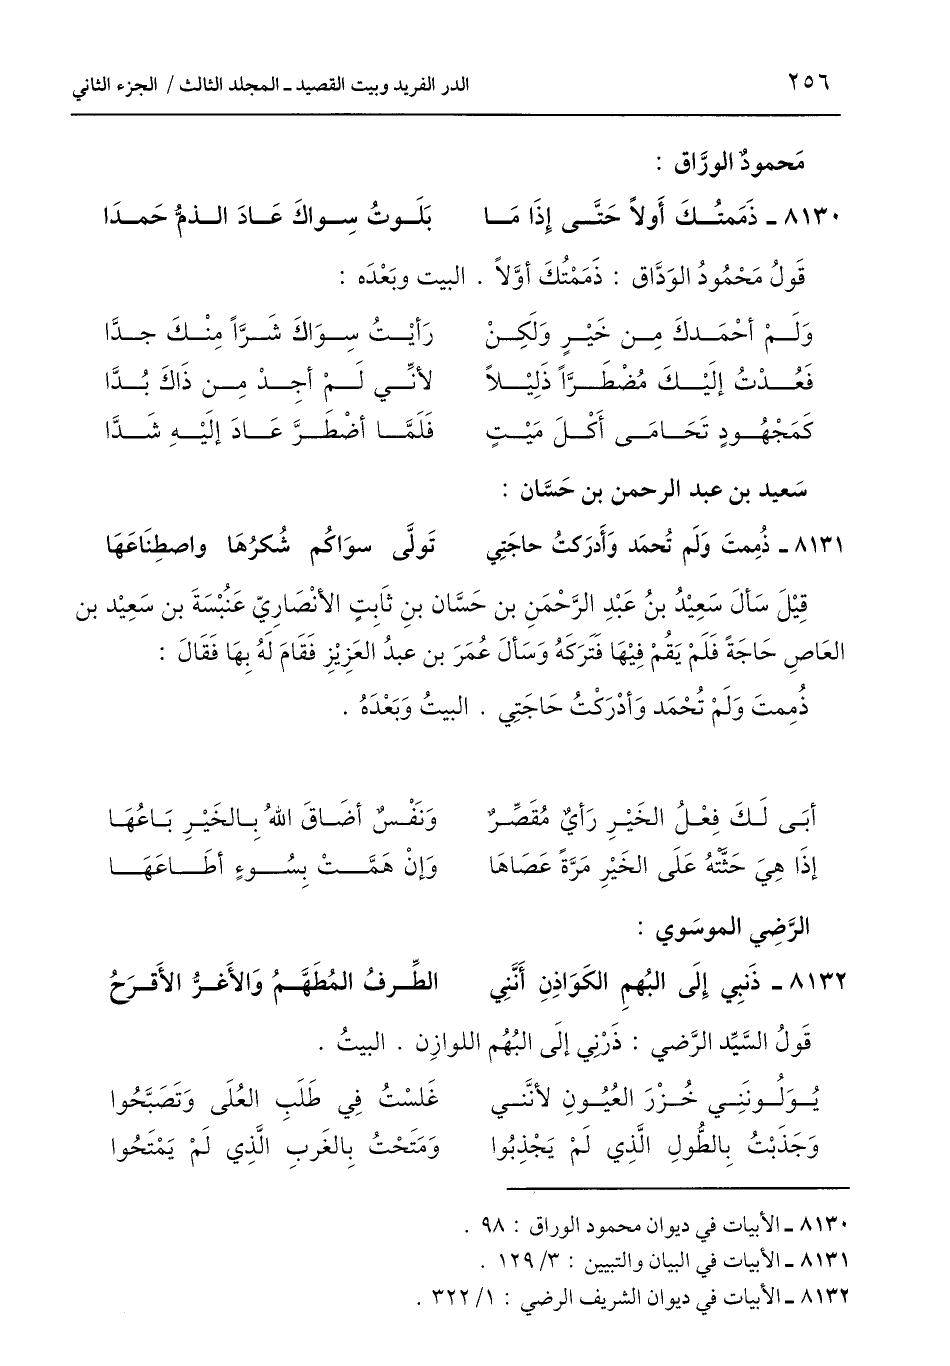 ٢٥٦ الدر الفريد وبيت القصيد ـ المجلد الثالث / الجزء الثاني
مَحمودٌ الورَّاق :
٨١٣٠ ـ ذَممتُــكَ أَولاً حَتَّــى إِذَا مَــا بَلَــوتُ سِــواكَ عَــادَ الــذمُّ حَمــدَا
قَولُ مَحْمُودُ الوَدَّاق : ذَمَمْتُكَ أوَّلاً . البيت وبَعْدَه :
وَلَــمْ أحْمَــدكَ مِــن خَيْــرٍ وَلَكِــنْ رَأيْــتُ سِــوَاكَ شَــرَّاً مِنْــكَ جــدَّا
فَعُــدْتُ إلَيْــكَ مُضْطَــرَّاً ذَلِيْــلاً لأنِّــي لَــمْ أجِــدْ مِــن ذَاكَ بُــدَّا
كَمَجْهُــودٍ تَحَــامَــى أَكْــلَ مَيْــتٍ فَلَمَّــا أضْطَــرَّ عَــادَ إلَيْــهِ شَــدَّا
سَعيد بن عبد الرحمن بن حَسَّان :
٨١٣١ ـ ذُمِمتَ وَلَم تُحمَد وَأَدرَكتُ حاجَتِي تَولَّى سوَاكُم شُكرُهَا واصطِنَاعَهَا
قِيْلَ سَألَ سَعِيْدُ بنُ عَبْدِ الرَّحْمَنِ بن حَسَّان بنِ ثَابِتٍ الأنْصَارِيّ عَنْبُسَةَ بن سَعِيْد بن
العَاصِ حَاجَةً فَلَمْ يَقُمْ فِيْهَا فَتَرَكَهُ وَسَألَ عُمَرَ بن عبدُ العَزِيْزِ فَقَامَ لَهُ بِهَا فَقَالَ :
ذُمِمتَ وَلَمْ تُحْمَد وَأدْرَكْتُ حَاجَتِي . البيتُ وَبَعْدَهُ .
أبَــى لَــكَ فِعْــلُ الخَيْــرِ رَأيٌ مُقَصِّــرٌ وَنَفْــسٌ أضَــاقَ اللهُ بِــالخَيْــرِ بَــاعُهَــا
إذَا هِيَ حَثَّتْهُ عَلَى الخَيْرِ مَرَّةً عَصَاهَا وَإنْ هَمَّــتْ بِسُــوءٍ أطَــاعَهَــا
الرَّضِي الموسَوي :
٨١٣٢ ـ ذَنبِي إلَى البُهمِ الكَوَاذِنِ أَنَّنِي الطِّــرفُ المُطَهَّــمُ وَالأَغــرُّ الأَقــرَحُ
قَولُ السَّيِّد الرَّضي : ذَرْنِي إلَى البُهُم اللوازن . البيتُ .
يُــولُــونَنِــي خُــزْرَ العُيُــونِ لأنَّنــي غَلسْتُ فِي طَلَبِ العُلَى وَتَصَبَّحُوا
وَجَذَبْتُ بِالطُّولِ الَّذِي لَمْ يَجْذِبُوا وَمَتَحْتُ بِالغَربِ الَّذِي لَمْ يَمْتَحُوا
٨١٣٠ ـ الأبيات في ديوان محمود الوراق : ٩٨ .
٨١٣١ ـ الأبيات في البيان والتبيين : ٣/ ١٢٩ .
٨١٣٢ ـ الأبيات في ديوان الشريف الرضي : ١/ ٣٢٢ .